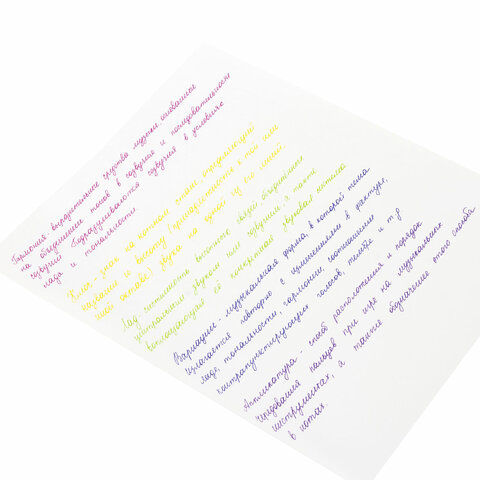 Гармония выразительное средство музыки, основанное
на объединении тонов в созвучия и последовательности
созвучий. Подразумеваются созвучия в условиях
лада и тональности.
Ключ, знак на нотном стане, определяющий
название и высоту (принадлежность к той или
иной октаве) звука на одной из его линий.
Лад, системность высотных связей, объединённых
центральным звуком или созвучием, а также
воплощающая её конкретная звуковая система
Вариации - музыкальная форма, в которой тема
излагается повторно с изменениями в фактуре,
ладе, тональности, гармонии, соотношении
контрапунктирующих голосов, тембре и т.д
Аппликатура - способ расположения и порядок
чередования пальцев при игре на музыкальных
инструментах, а также обозначение этого способа
в нотах.